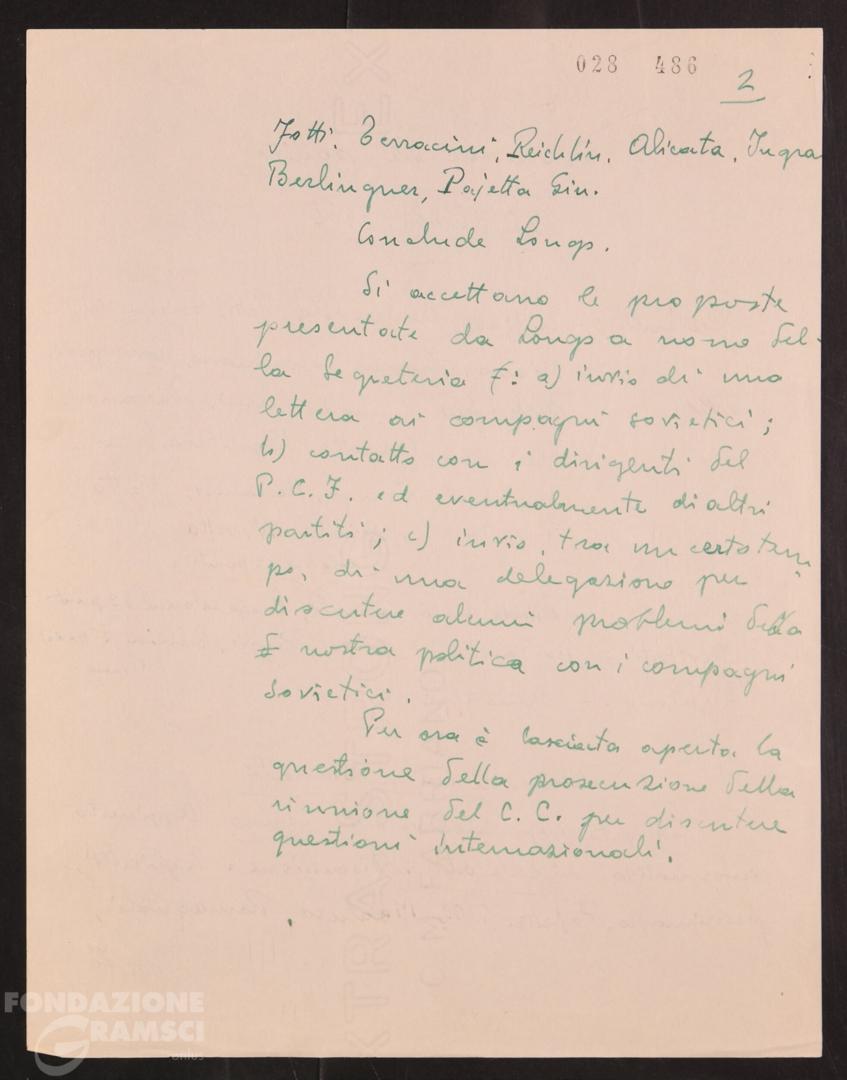 028 486
2
Jotti, Terracini, Reichlin, Alicata, Ingra
Berlinguer, Pajetta Giu.
Conclude Longo.
Si accettano le proposte
presentate da Longo a nome del-
la Segreteria : a) invio di una
lettera ai compagni sovietici ;
b) contatto con i dirigenti del
P.C.F. ed eventualmente di altri
partiti ; c) invio, tra un certo tem
po, di una delegazione per
discutere alcuni problemi della
nostra politica con i compagni
sovietici.
Per ora è lasciata aperta la
questione della prosecuzione della
riunione del C.C. per discutere
questioni internazionali.
FONDAZIONE
GRAMSCI
onlus